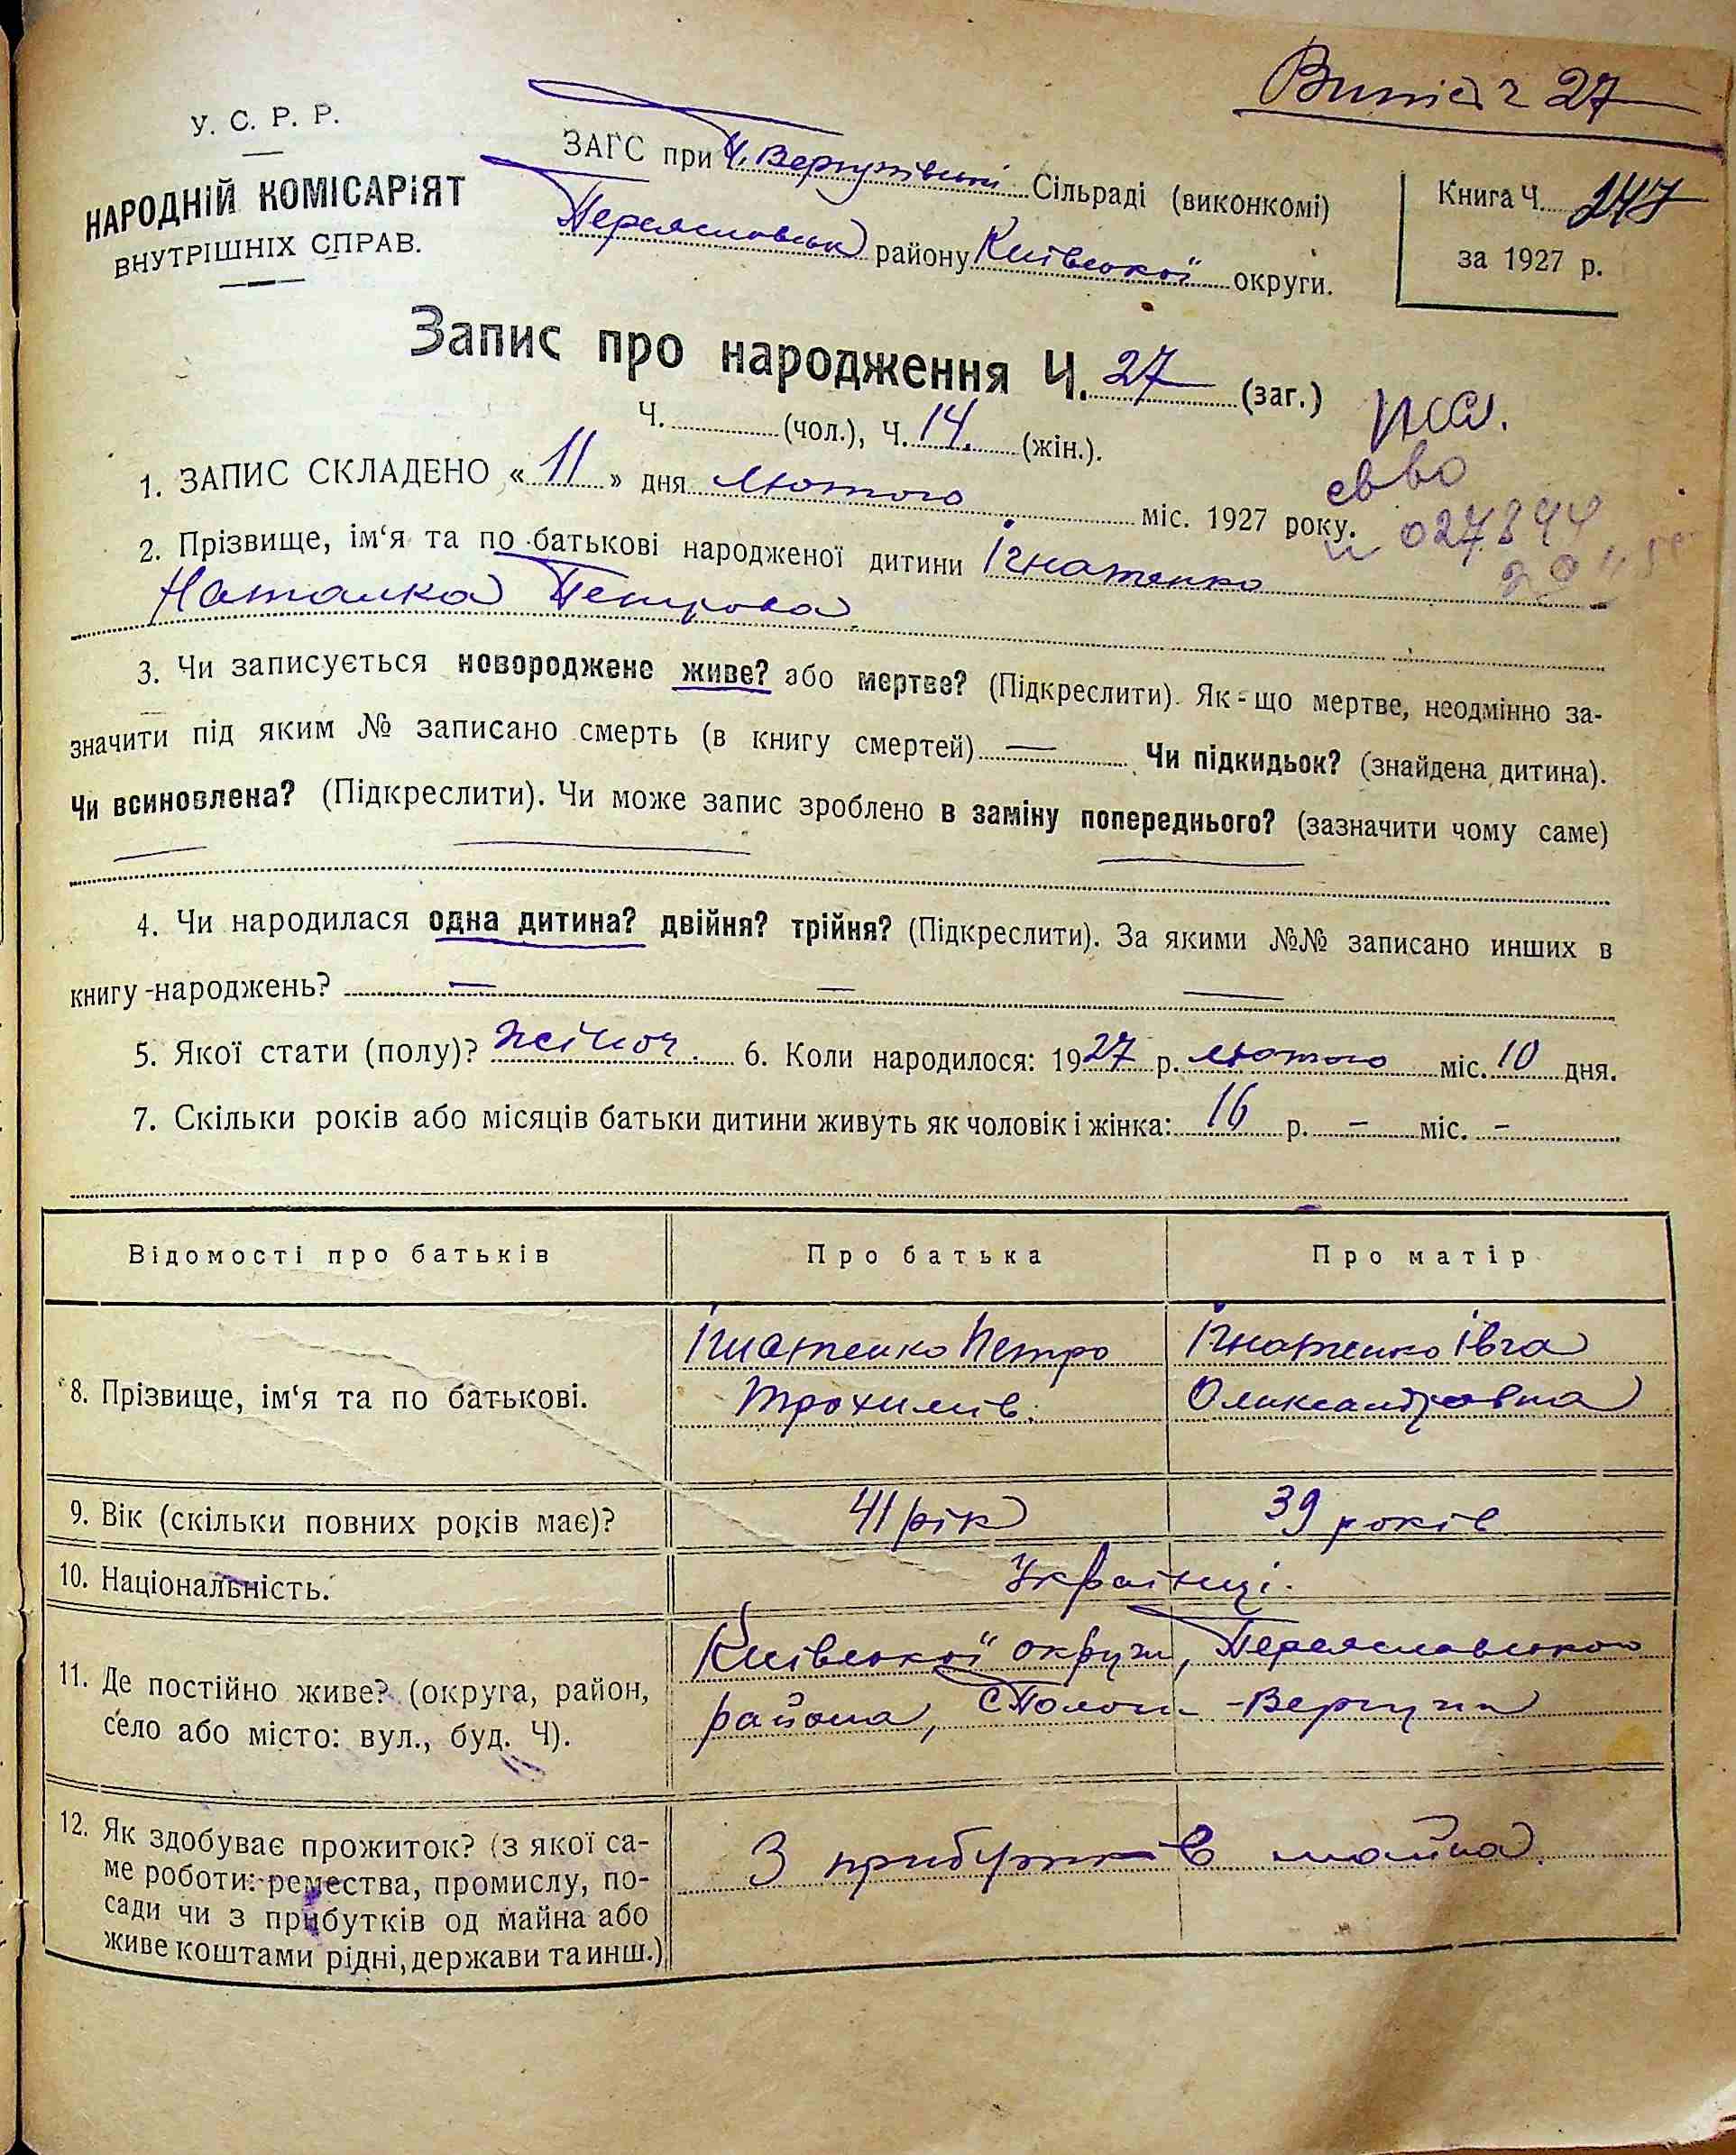 Витяг 27
У. С. Р. Р.
НАРОДНІЙ КОМІСАРІЯТ
ВНУТРІШНІХ СПРАВ.
ЗАГС при П. Вергунівській Сільраді (виконкомі)
Переяславськ району Київської округи.
Книга Ч. 247
за 1927 р.
Запис про народження Ч. 27 (заг.)
Ч. (чол.), Ч. 14. (жін.).
1. ЗАПИС СКЛАДЕНО « 11 » дня лютого міс. 1927 року.
027844
2. Прізвище, ім‘я та по батькові народженої дитини Ігнатенко
Наталка Петрова
3. Чи записується новороджене живе? або мертве? (Підкреслити). Як-що мертве, неодмінно за-
значити під яким № записано смерть (в книгу смертей) — Чи підкидьок? (знайдена дитина).
Чи всиновлена? (Підкреслити). Чи може запис зроблено в заміну попереднього? (зазначити чому саме)
4. Чи народилася одна дитина? двійня? трійня? (Підкреслити). За якими №№ записано инших в
книгу народжень? — — —
5. Якої стати (полу)? жіноч. 6. Коли народилося: 1927 р. лютого міс. 10 дня.
7. Скільки років або місяців батьки дитини живуть як чоловік і жінка: 16 р. – міс. –
Відомості про батьків Про батька Про матір
Ігнатенко Петро Ігнатенко Івга
8. Прізвище, ім‘я та по батькові. Трохимів. Олександровна
9. Вік (скільки повних років має)? 41 рік 39 років
10. Національність. Українці.
Київської округи, Переяславського
11. Де постійно живе? (округа, район,
района, с Полог-Вергуни
село або місто: вул., буд. Ч).
12. Як здобуває прожиток? (з якої са-
ме роботи: ремества, промислу, по- З прибутків майна.
сади чи з прибутків од майна або
живе коштами рідні, держави та инш.)